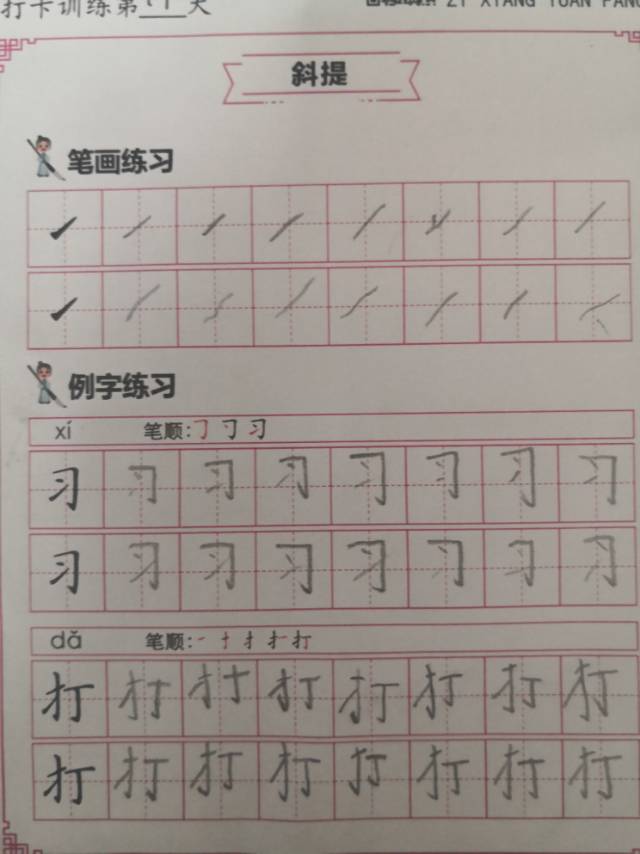 打卡训练第 天
ZI XIANG YUAN PANG
斜提
笔画练习
例字练习
xí 笔顺:
习 习 习 习 习 习 习 习
习 习 习 习 习 习 习 习
dǎ 笔顺:
打 打 打 打 打 打 打 打
打 打 打 打 打 打 打 打